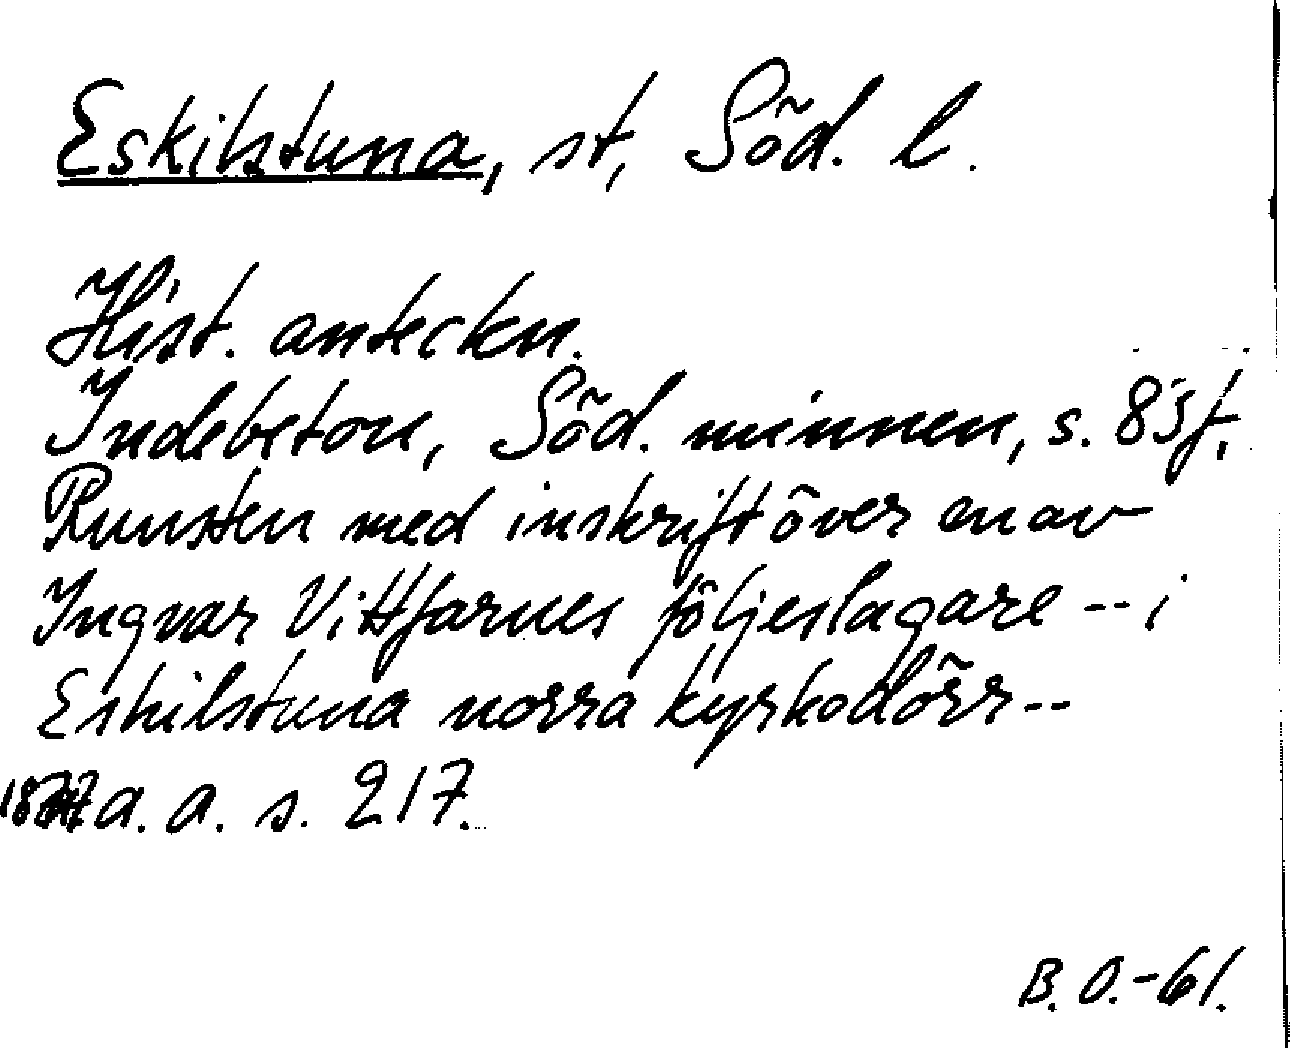 Eskilstuna, st, Söd. l.
Hist. anteckn.
Indebetou, Söd. minnen, s. 83f.
Runsten med inskrift över en av
Ingvar Vittfarnes följeslagare -- i
Eskilstuna norra kyrkodörr --
a. a. s. 217.
B. O. -61.